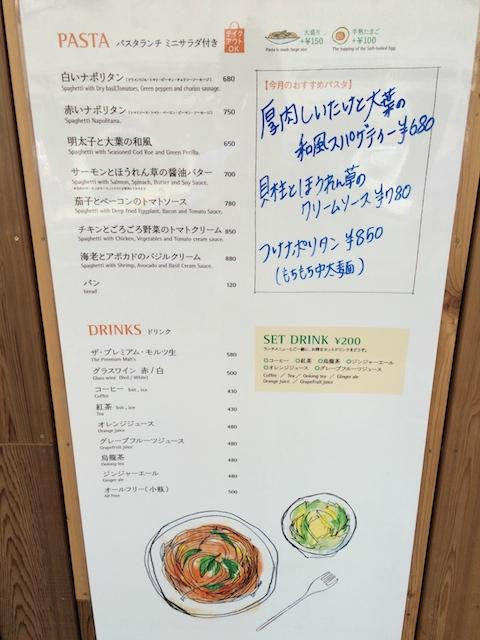 PASTA パスタランチ ミニサラダ付き
テイクアウトOK
大盛り +¥150
Pasta is made large size
半熟たまご +¥100
The topping of the Soft-boiled Egg
白いナポリタン 680
Spaghetti with Dry basil,Tomatoes, Green peppers and chorizo sausage.
赤いナポリタン 750
Spaghetti Napolitana.
明太子と大葉の和風 650
Spaghetti with Seasoned Cod Roe and Green Perilla.
サーモンとほうれん草の醤油バター 700
Spaghetti with Salmon, Spinach, Butter and Soy Sauce.
茄子とベーコンのトマトソース 780
Spaghetti with Deep fried Eggplant, Bacon and Tomato Sauce.
チキンとごろごろ野菜のトマトクリーム 850
Spaghetti with Chicken, Vegetables and Tomato cream sauce.
海老とアボカドのバジルクリーム 880
Spaghetti with Shrimp, Avocado and Basil Cream Sauce.
パン 120
bread
【今月のおすすめパスタ】
厚肉しいたけと大葉の
和風スパゲティー ¥680
貝柱とほうれん草の
クリームソース ¥780
つけナポリタン ¥850
(もちもち中太麺)
DRINKS ドリンク
ザ・プレミアム・モルツ生 580
The Premium Malt's
グラスワイン 赤/白 500
Glass wine (Red / White)
コーヒー hot , ice 430
Coffee
紅茶 hot , ice 430
Tea
オレンジジュース 480
Orange juice
グレープフルーツジュース 480
Grapefruit juice
烏龍茶 480
Oolong tea
ジンジャーエール 480
Ginger ale
オールフリー(小瓶) 500
All Free
SET DRINK ¥200
ランチメニューとご一緒に、お得なセットドリンクをどうぞ。
◎コーヒー ◎紅茶 ◎烏龍茶 ◎ジンジャーエール
◎オレンジジュース ◎グレープフルーツジュース
Coffee / Tea / Oolong tea / Ginger ale
Orange juice / Grapefruit juice